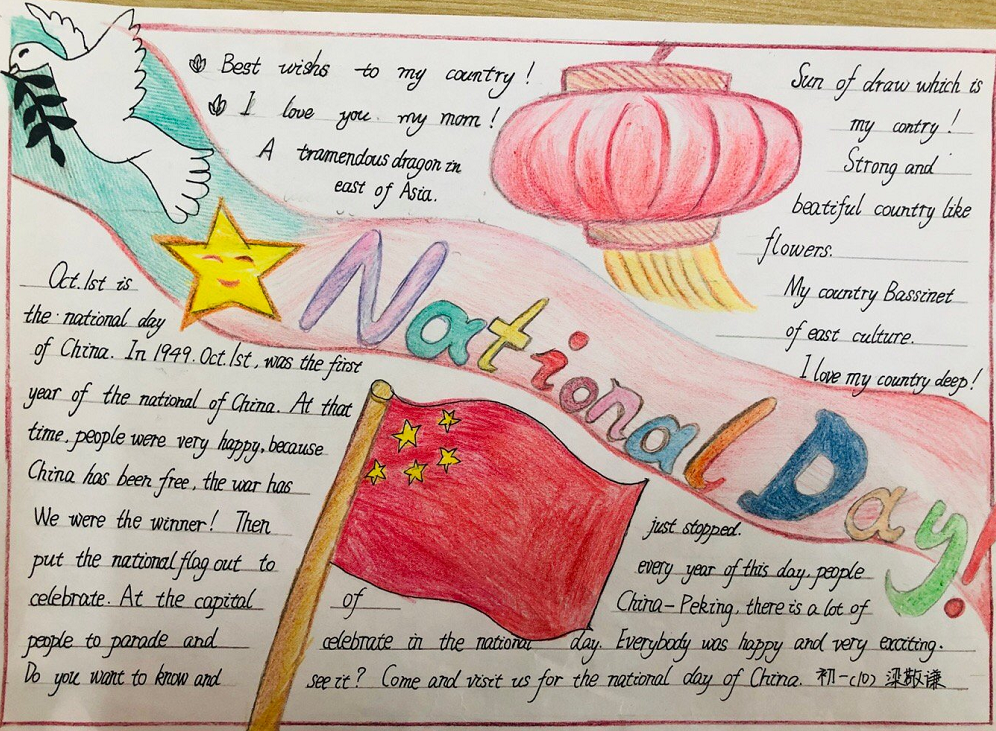 Best wishs to my country!
I love you my mom!
A tramendous dragon in
east of Asia.
Sun of draw which is
my contry!
Strong and
beatiful country like
flowers.
My country Bassinet
of east culture.
I love my country deep!
National Day!
Oct.1st is
the national day
of China. In 1949.Oct.1st, was the first
year of the national of China. At that
time, people were very happy, because
China has been free, the war has
just stopped.
We were the winner! Then
every year of this day, people
put the national flag out to
celebrate. At the capital of China-Peking, there is a lot of
people to parade and celebrate in the national day. Everybody was happy and very exciting.
Do you want to know and see it? Come and visit us for the national day of China. 初一(10) 梁敬谦